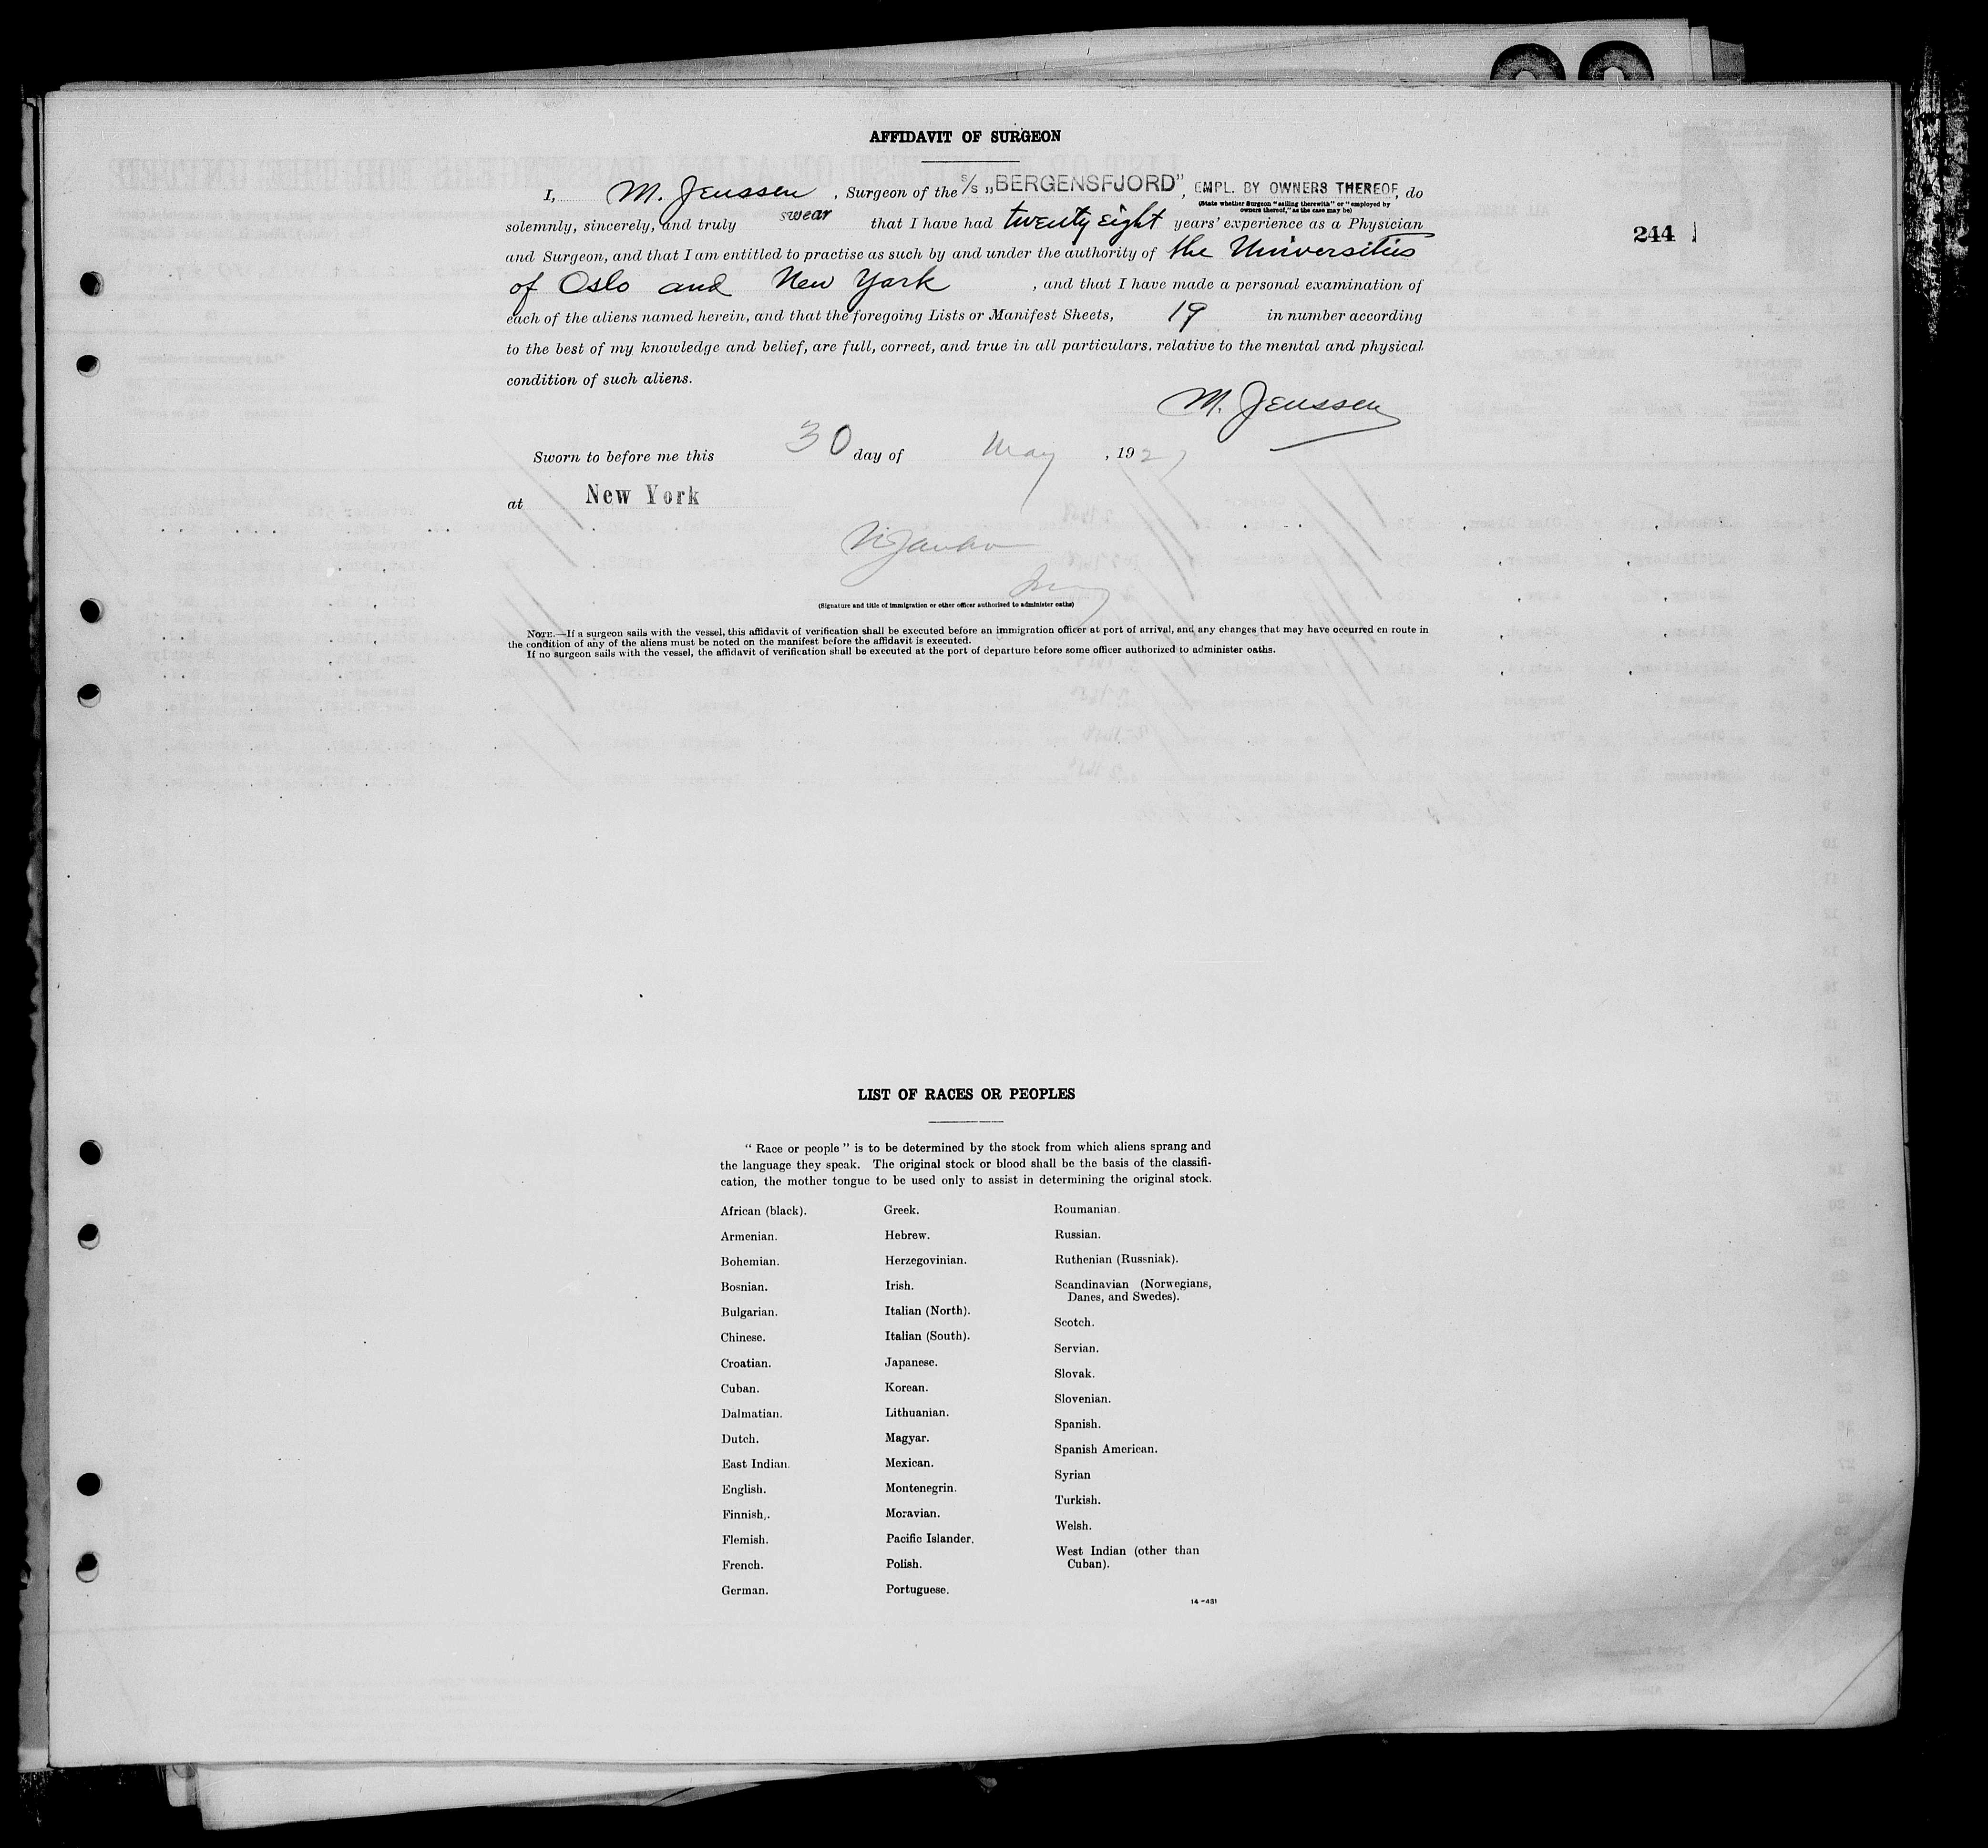 AFFIDAVIT OF SURGEON
I, M. Jenssen, Surgeon of the S/S „BERGENSFJORD”, EMPL. BY OWNERS THEREOF, do
(State whether Surgeon "sailing therewith" or "employed by
owners thereof," as the case may be)
solemnly, sincerely, and truly swear that I have had twenty eight years' experience as a Physician
244
and Surgeon, and that I am entitled to practise as such by and under the authority of the Universities
of Oslo and New York, and that I have made a personal examination of
each of the aliens named herein, and that the foregoing Lists or Manifest Sheets, 19 in number according
to the best of my knowledge and belief, are full, correct, and true in all particulars, relative to the mental and physical
condition of such aliens.
M. Jenssen
Sworn to before me this 30 day of May, 1927
at New York
(Signature and title of immigration or other officer authorized to administer oaths)
NOTE.—If a surgeon sails with the vessel, this affidavit of verification shall be executed before an immigration officer at port of arrival, and any changes that may have occurred en route in
the condition of any of the aliens must be noted on the manifest before the affidavit is executed.
If no surgeon sails with the vessel, the affidavit of verification shall be executed at the port of departure before some officer authorized to administer oaths.
LIST OF RACES OR PEOPLES
"Race or people" is to be determined by the stock from which aliens sprang and
the language they speak. The original stock or blood shall be the basis of the classifi-
cation, the mother tongue to be used only to assist in determining the original stock.
African (black).
Armenian.
Bohemian.
Bosnian.
Bulgarian.
Chinese.
Croatian.
Cuban.
Dalmatian.
Dutch.
East Indian.
English.
Finnish.
Flemish.
French.
German.
Greek.
Hebrew.
Herzegovinian.
Irish.
Italian (North).
Italian (South).
Japanese.
Korean.
Lithuanian.
Magyar.
Mexican.
Montenegrin.
Moravian.
Pacific Islander.
Polish.
Portuguese.
Roumanian.
Russian.
Ruthenian (Russniak).
Scandinavian (Norwegians,
Danes, and Swedes).
Scotch.
Servian.
Slovak.
Slovenian.
Spanish.
Spanish American.
Syrian
Turkish.
Welsh.
West Indian (other than
Cuban).
14—431